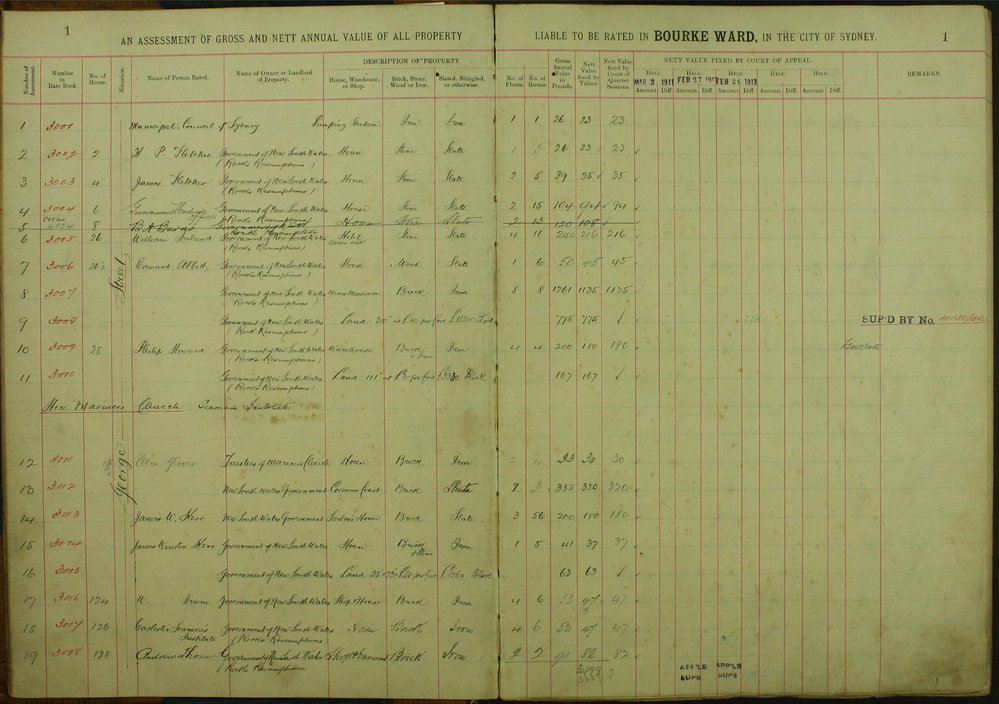 1
AN ASSESSMENT OF GROSS AND NETT ANNUAL VALUE OF ALL PROPERTY
LIABLE TO BE RATED IN BOURKE WARD, IN THE CITY OF SYDNEY.
1
DESCRIPTION OF PROPERTY
NETT VALUE FIXED BY COURT OF APPEAL
Number of Assessment. Number in Rate Book. No. of House. Situation Name of Person Rated. Name of Owner or Landlord of Property. House, Warehouse, or Shop. Brick, Stone, Wood or Iron. Slated, Shingled, or otherwise. No. of Floors. No. of Rooms. Gross Annual Value in Pounds. Nett Value fixed by Valuer. Nett Value fixed by Court of Quarter Sessions. REMARKS.
HELD. HELD. HELD. HELD. HELD.
MAR 3 1911 FEB 27 1912 FEB 26 1913
Amount. Diff. Amount. Diff. Amount. Diff. Amount. Diff. Amount. Diff.
1 3001 Municipal Council of Sydney Pumping Station Iron Iron 1 1 26 23 23
2 3002 2 H P Fletcher Government of New South Wales House Stone Slate 1 5 26 23 23
(Rocks Resumptions)
3 3003 4 James Fletcher Government of New South Wales House Stone Slate 2 5 39 35 35
(Rocks Resumptions)
4 3004 6 Government Medical Offices Government of New South Wales House Stone Slate 2 15 104 94 94
(Rocks Resumptions)
5 4074 8 Stone Slate 2 13 120 108
6 3005 26 William Government of New South Wales Hotel Stone Slate 4 11 240 216 216
(Rocks Resumptions)
7 3006 26½ Edward Abbott Government of New South Wales House Wood Slate 1 6 50 45 45
(Rocks Resumptions)
Street
8 3007 Government of New South Wales Mines Museum Brick Iron 8 8 1261 1135 1135
(Rocks Resumptions)
9 3008 Government of New South Wales Land 775 775
(Rocks Resumptions)
SUP'D BY No.
10 3009 28 Philip Howard Government of New South Wales Warehouse Brick & Iron Iron 4 4 200 180 180
(Rocks Resumptions)
11 3010 Government of New South Wales Land 111' 167 167
(Rocks Resumptions)
Here Mariners Church Seamans Institute
George
12 3011 Glover Trustees of Mariners Church House Brick Iron 2 4 33 30 30
13 3012 New South Wales Government Coroners Court Brick 7 3 355 320 320
14 3013 James W. Kerr New South Wales Government Sailors Home Brick Slate 3 56 200 180 180
15 3014 James Kerr Government of New South Wales House Brick & Stone Iron 1 5 41 37 37
16 3015 Government of New South Wales Land 63 63
17 3016 124 W. Irwin Government of New South Wales Shop & House Brick Iron 4 6 53 47 47
18 3017 126 Catholic Seamens Institute Government of New South Wales House Brick Iron 4 6 52 47 47
(Rocks Resumptions
19 3018 128 Andrew Thom Government of New South Wales Shop & Basement Brick Iron 2 2 91 82 82
(Rocks Resumption
APP'LS APP'LS
SUPS SUPS